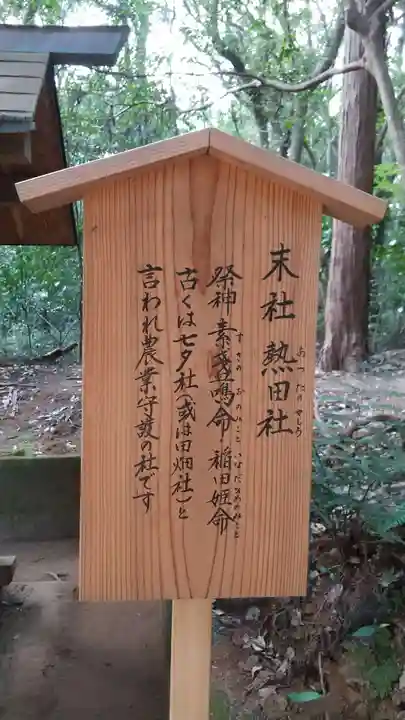 末社 熱田社
あつたのやしろ
祭神 素戔嗚命・稲田姫命
すさのおのみこと いなだひめのみこと
古くは七夕社(或は田畑社)と
言われ農業守護の社です